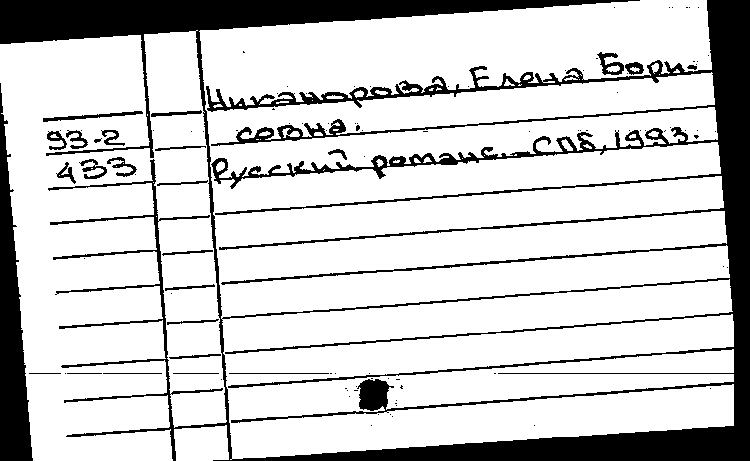 Никанорова, Елена Бори-
93-2 совна.
433 Русский романс.-СПб, 1993.